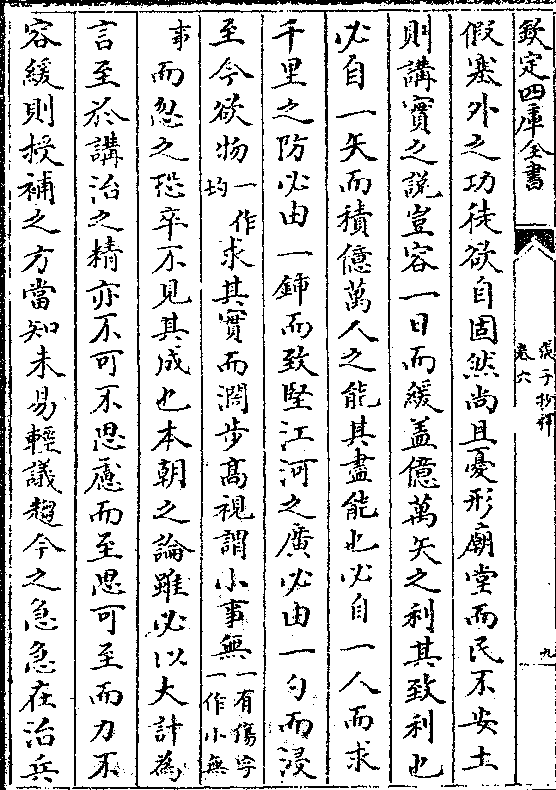 欽定四庫全書
張子抄釋
卷六
九
假塞外之功徒欲自固然尚且憂形廟堂而民不安土
則講實之說豈容一日而緩蓋億萬矢之利其致利也
必自一矢而積億萬人之能其盡能也必自一人而求
千里之防必由一鍤而致堅江河之廣必由一勺而浸
至今欲物一作均求其實而濶步高視謂小事無一有傷字一作小無
事而忽之恐卒不見其成也本朝之論雖必以大計為
言至於講治之精亦不可不思慮而至思可至而力不
容緩則授補之方當知未易輕議趨今之急急在治兵